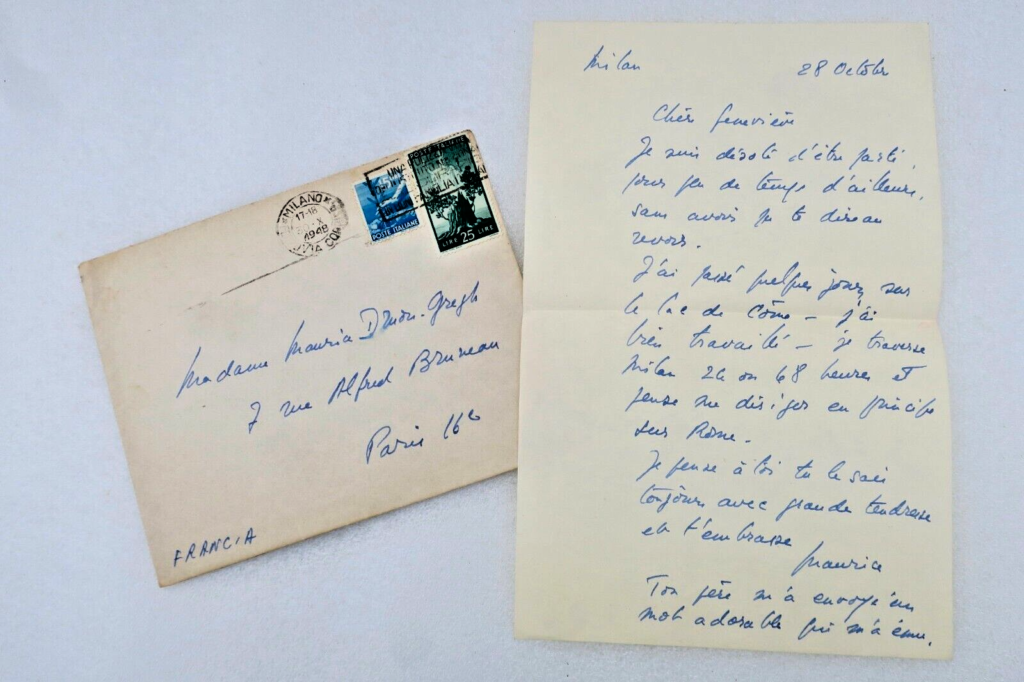 MILANO
17-18
X
1948
POSTE ITALIANE
POSTE ITALIANE
LIRE 25 LIRE
Madame Maurice Druon-Gregh
7 rue Alfred Bruneau
Paris 16e
FRANCIA
Milan 28 Octobre
Chère Geneviève
Je suis désolé d'être parti,
pour peu de temps d'ailleurs,
sans avoir pu te dire au
revoir.
J'ai passé quelques jours sur
le lac de Côme – j'ai
bien travaillé – je traverse
Milan 24 ou 48 heures et
pense me diriger en principe
sur Rome.
Je pense à toi tu le sais
toujours avec grande tendresse
et t'embrasse
Maurice
Ton père m'a envoyé un
mot adorable qui m'a ému.